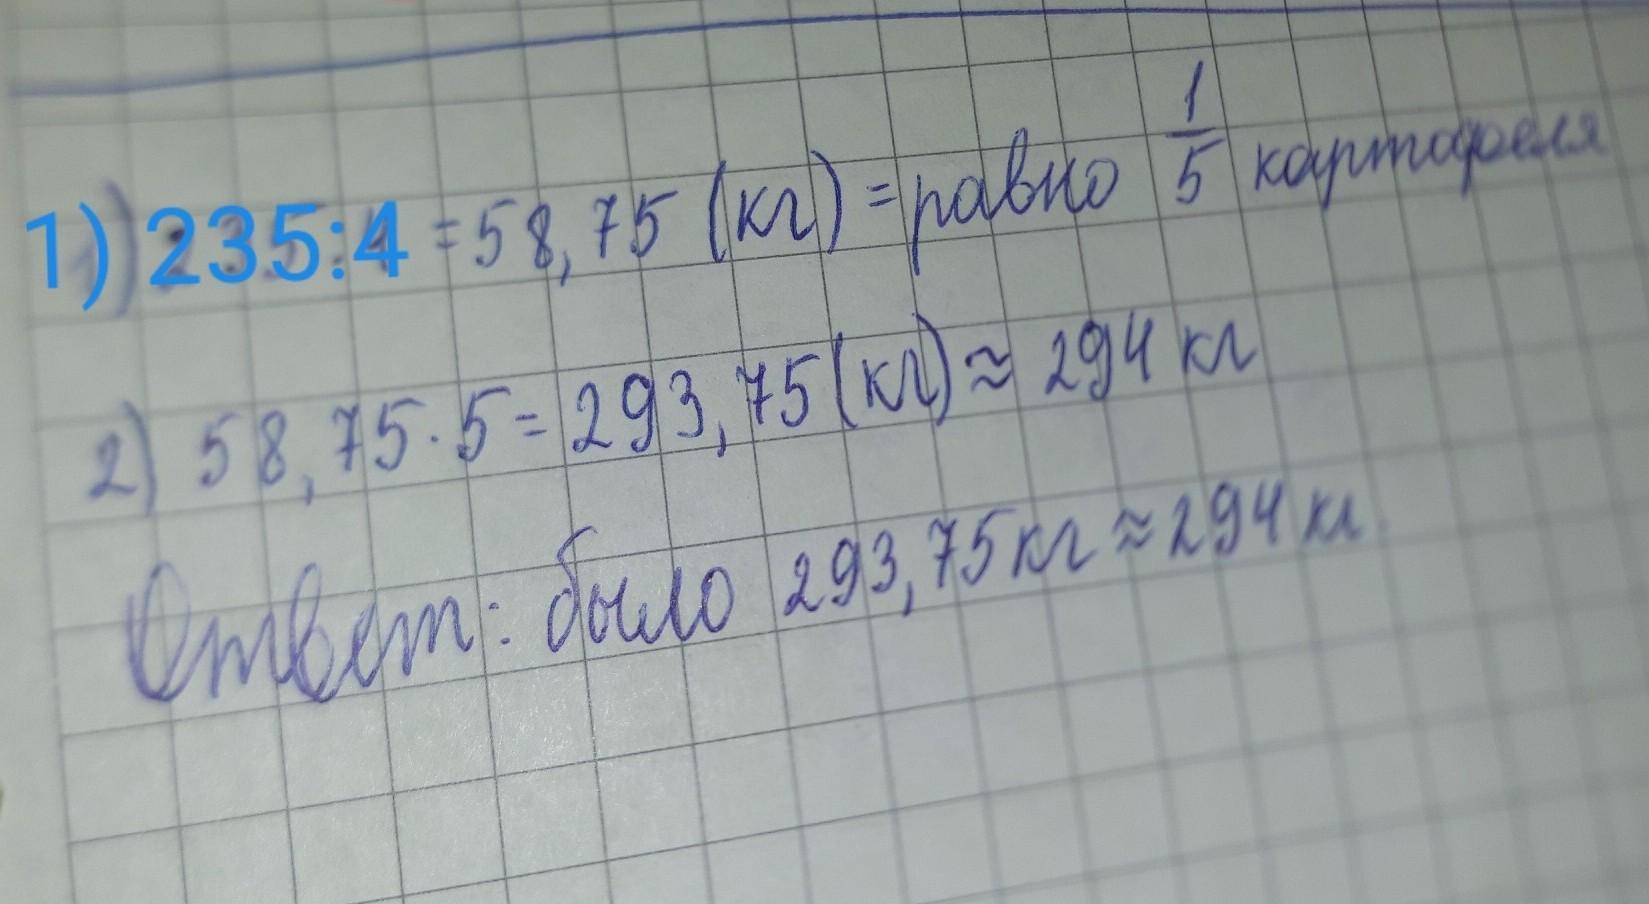 1) 235:4 = 58,75 (кг) = равно 1/5 картофеля
2) 58,75 · 5 = 293,75 (кг) ≈ 294 кг
Ответ: было 293,75 кг ≈ 294 кг